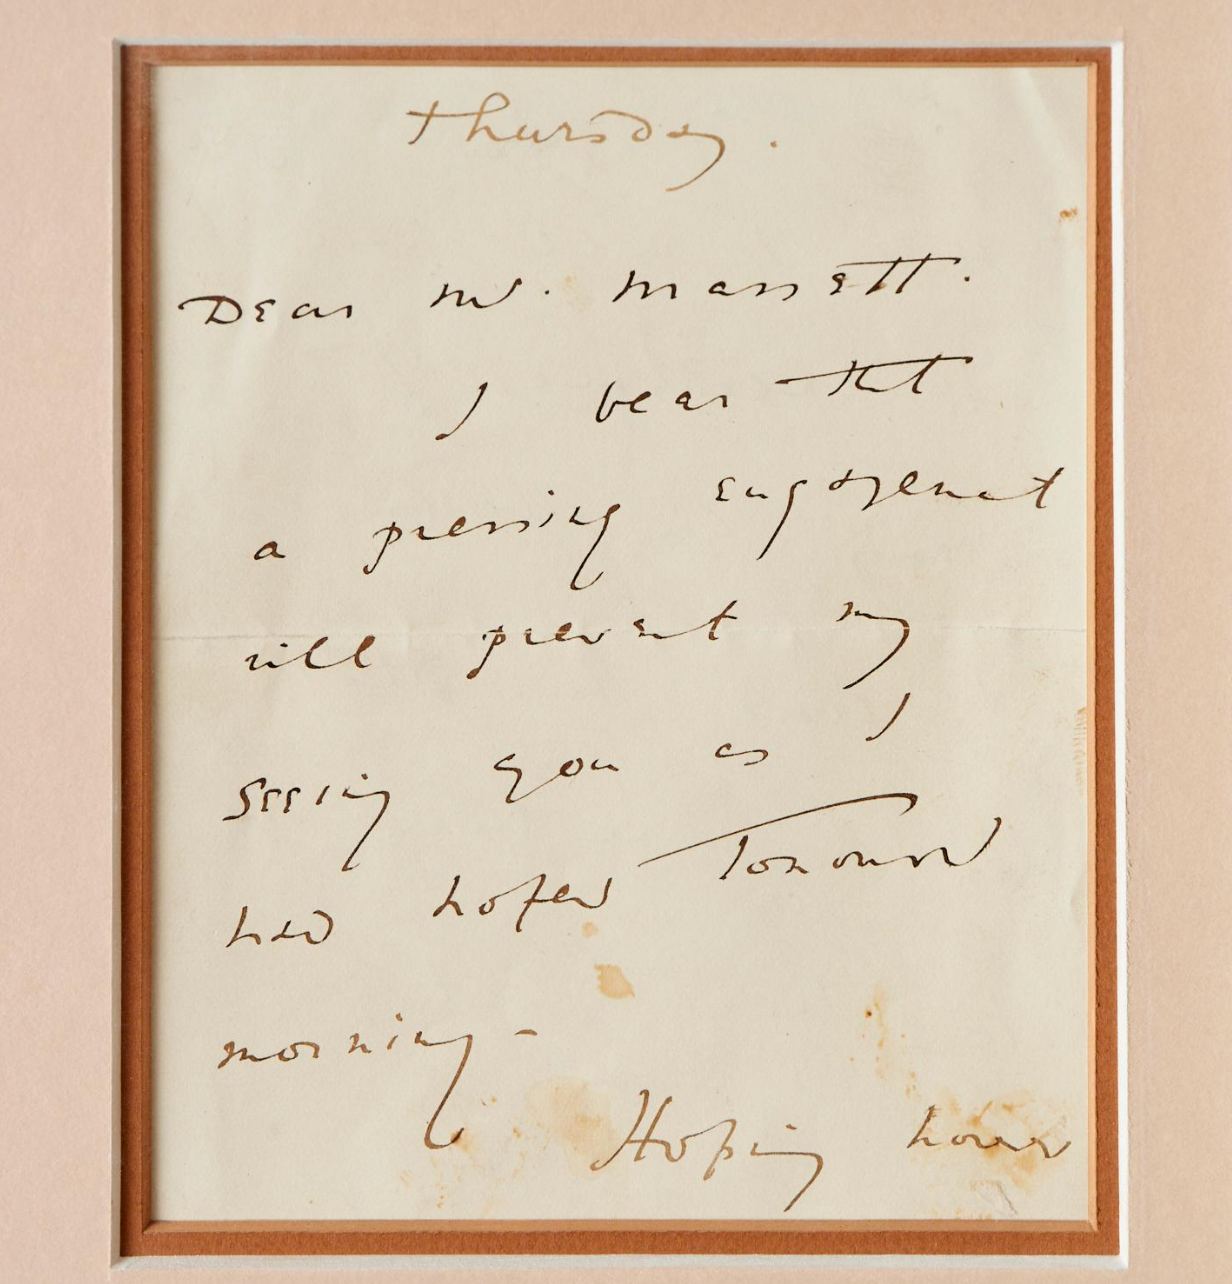 Thursday.
Dear Mr. Massett.
I that
a pressing engagement
will prevent my
seeing you as I
had hoped Tomorrow
morning -
Hoping